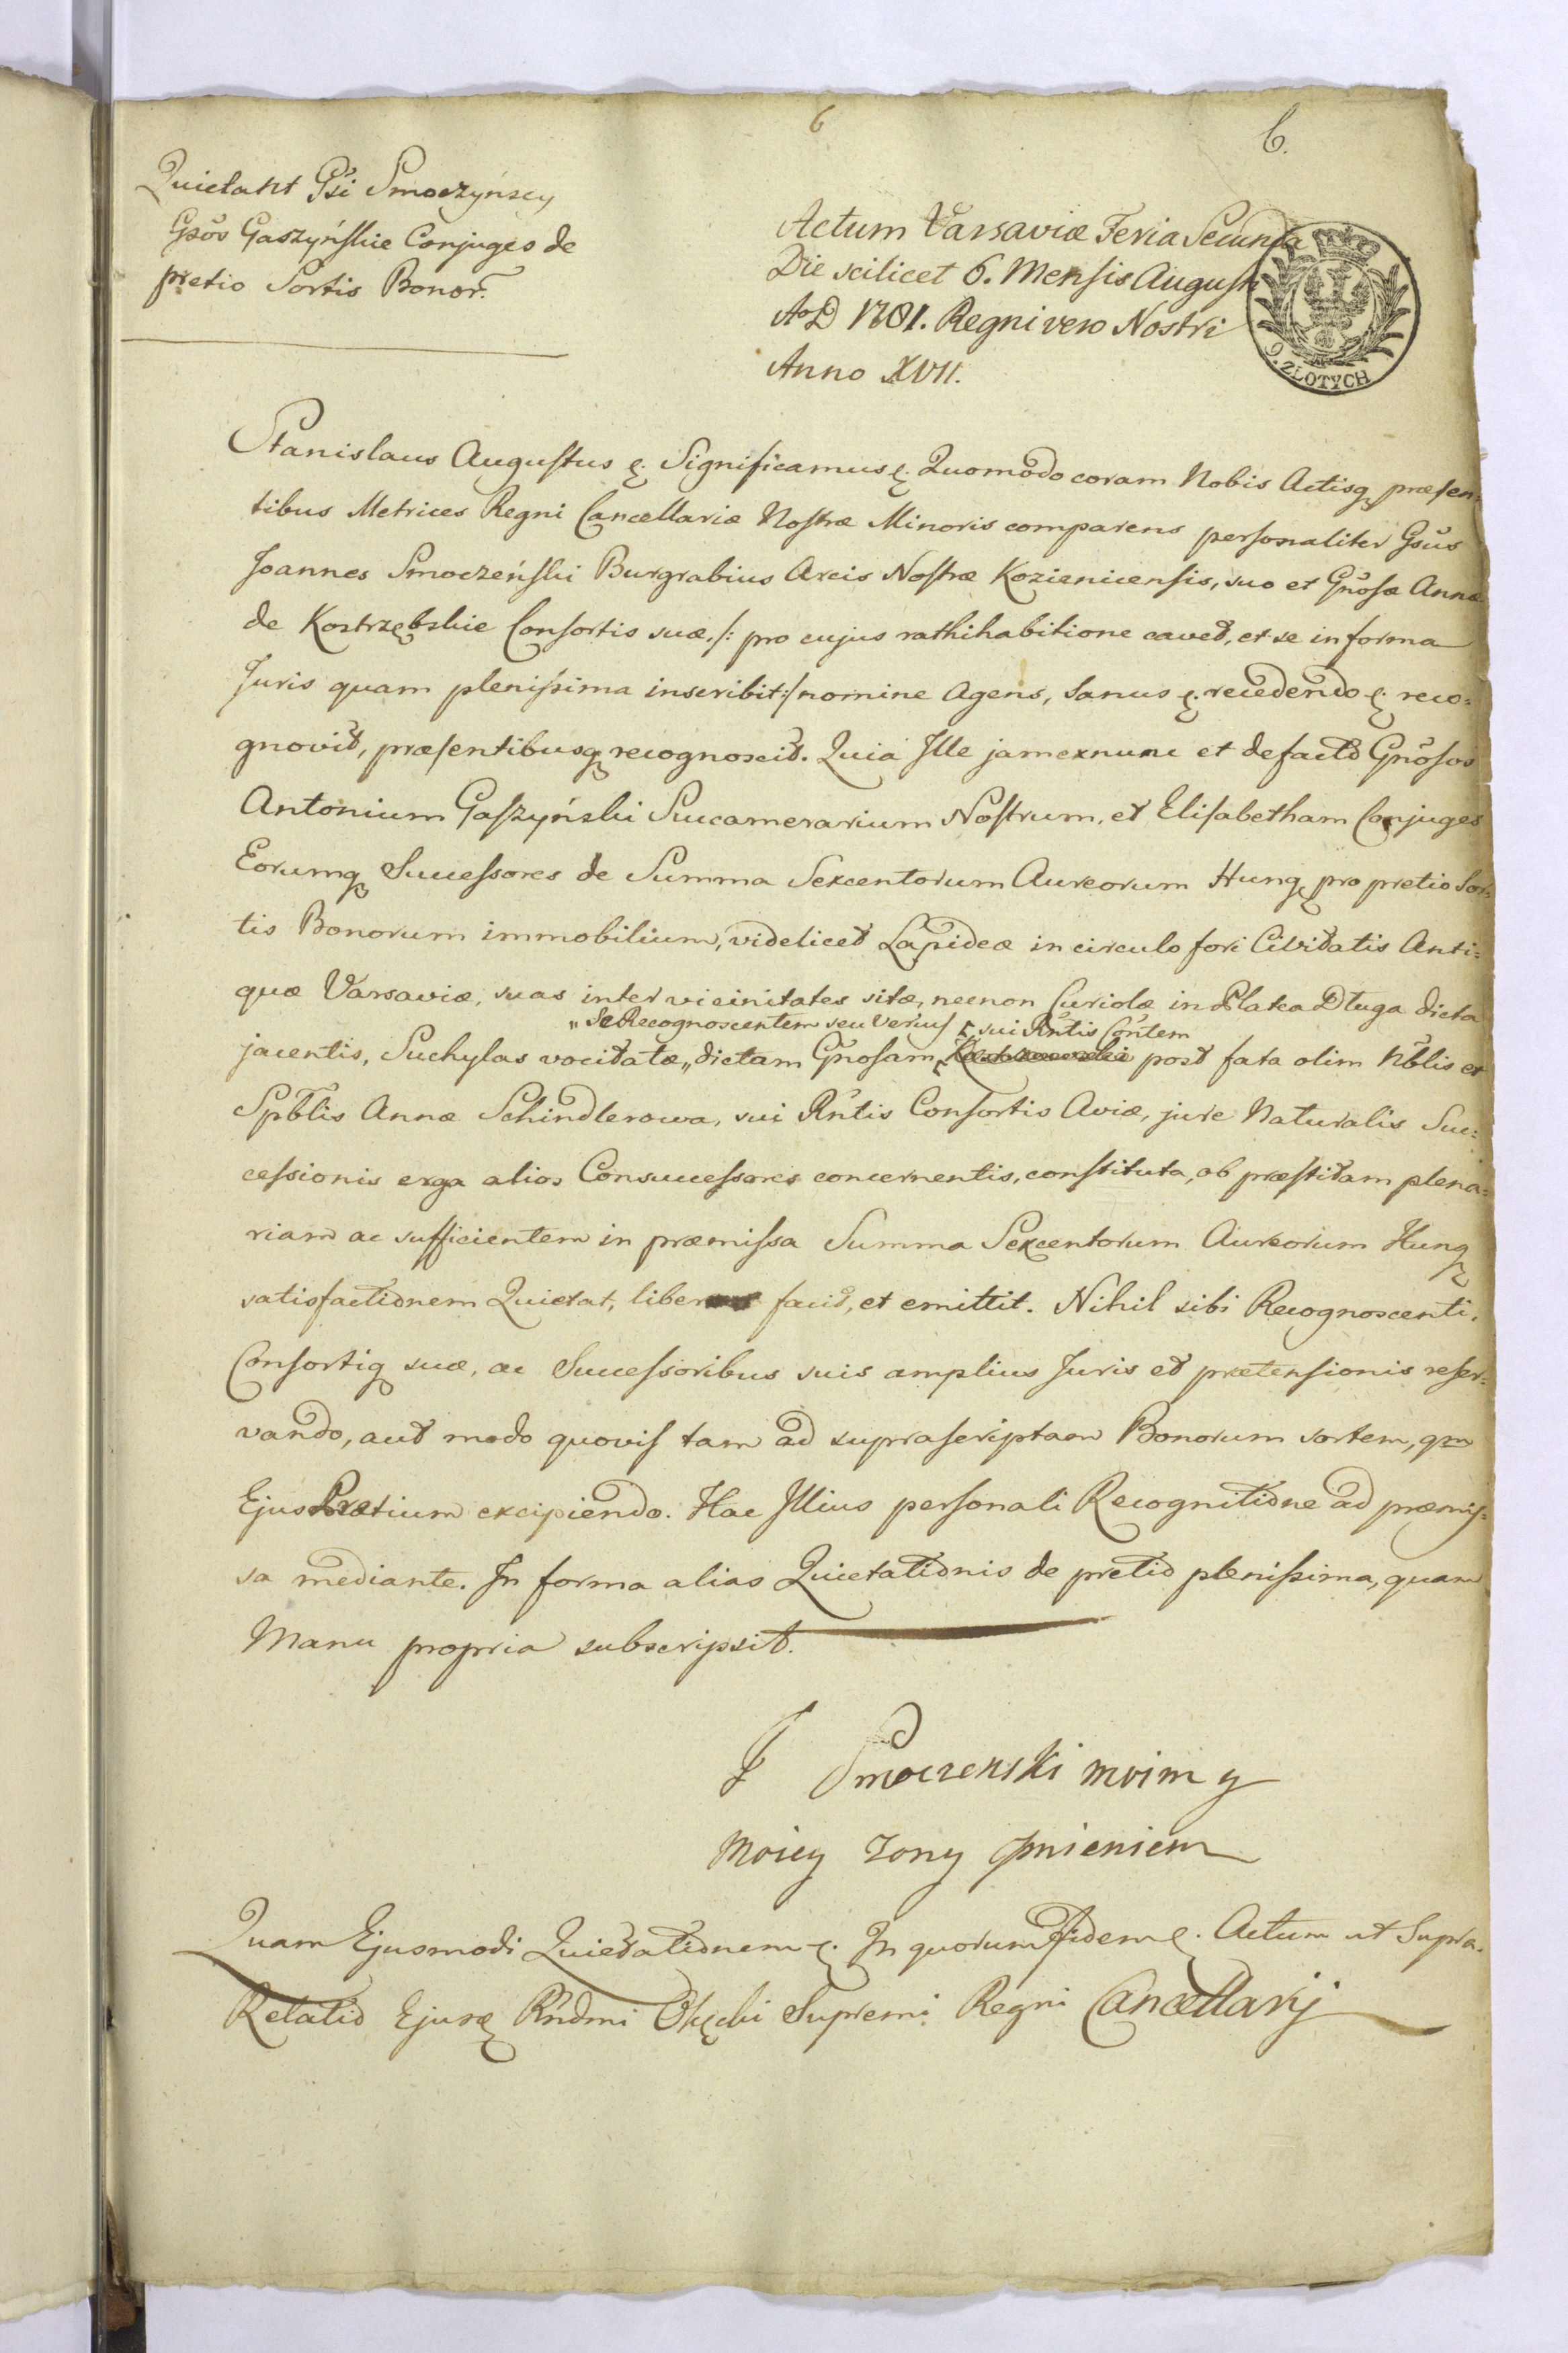 6
6.
Quietant Gsi Smoczyńscy
Gsos Gaszyńskie Conjuges de
pretio Sortis Bonor.
Actum Varsaviæ Feria Secunda
Die scilicet 6. Mensis Augusti
AoD 1781. Regni vero Nostri
Anno XVII.
9. ZŁOTYCH
Stanislaus Augustus ę. Significamus ę. Quomodo coram Nobis Actisq præsen=
tibus Metrices Regni Cancellariæ Nostræ Minoris comparens personaliter Gsus
Joannes Smoczeński Burgrabius Arcis Nostræ Kozienicensis, suo et Gnosæ Annæ
de Kostrzębskie Consortis suæ, /: pro cujus rathihabitione cavet, et se in forma
Juris quam plenissima inscribit :/ nomine Agens, Sanus ę. recedendo ę. reco=
gnovit, præsentibusq recognoscit. Quia Ille jam exnunc et defacto Gnosos
Antonium Gaszyński Succamerarium Nostrum, et Elisabetham Conjuges
Eorumq Successores de Summa Sexcentorum Aureorum Hung pro pretio Sor=
tis Bonorum immobilium, videlicet Lapideæ in circulo fori Civitatis Anti=
quæ Varsaviæ, suas inter vicinitates sitæ, necnon Curiolæ in Platea Długa dicta
„ Se Recognoscentem seu verius sui Rntis Contem
jacentis, Suchylas vocitatæ „ dictam Gnosam post fata olim Nblis et
Spblis Annæ Schindlerowa, sui Rntis Consortis Aviæ, jure Naturalis Suc=
cessionis erga alios Consuccessores concernentis, constituta, ob præstitam plena=
riam ac sufficientem in præmissa Summa Sexcentorum Aureorum Hung
satisfactionem Quietat, liber facit, et emittit. Nihil sibi Recognoscenti,
Consortiq suæ, ac Successoribus suis amplius Juris et prætensionis reser=
vando, aut modo quovis tam ad suprascriptam Bonorum sortem, qm
Ejus Prætium excipiendo. Hac Illius personali Recognitione ad præmis=
sa mediante. In forma alias Quietationis de pretio plenissima, quam
Manu propria subscripsit.
J Smoczenski moim y
Moiey zony Jmieniem
Quam Ejusmodi Quietationem ę. In quorum Fidem ę. Actum ut Supra.
Relatio Ejusę Rndmi Okęcki Supremi Regni Cancellarij